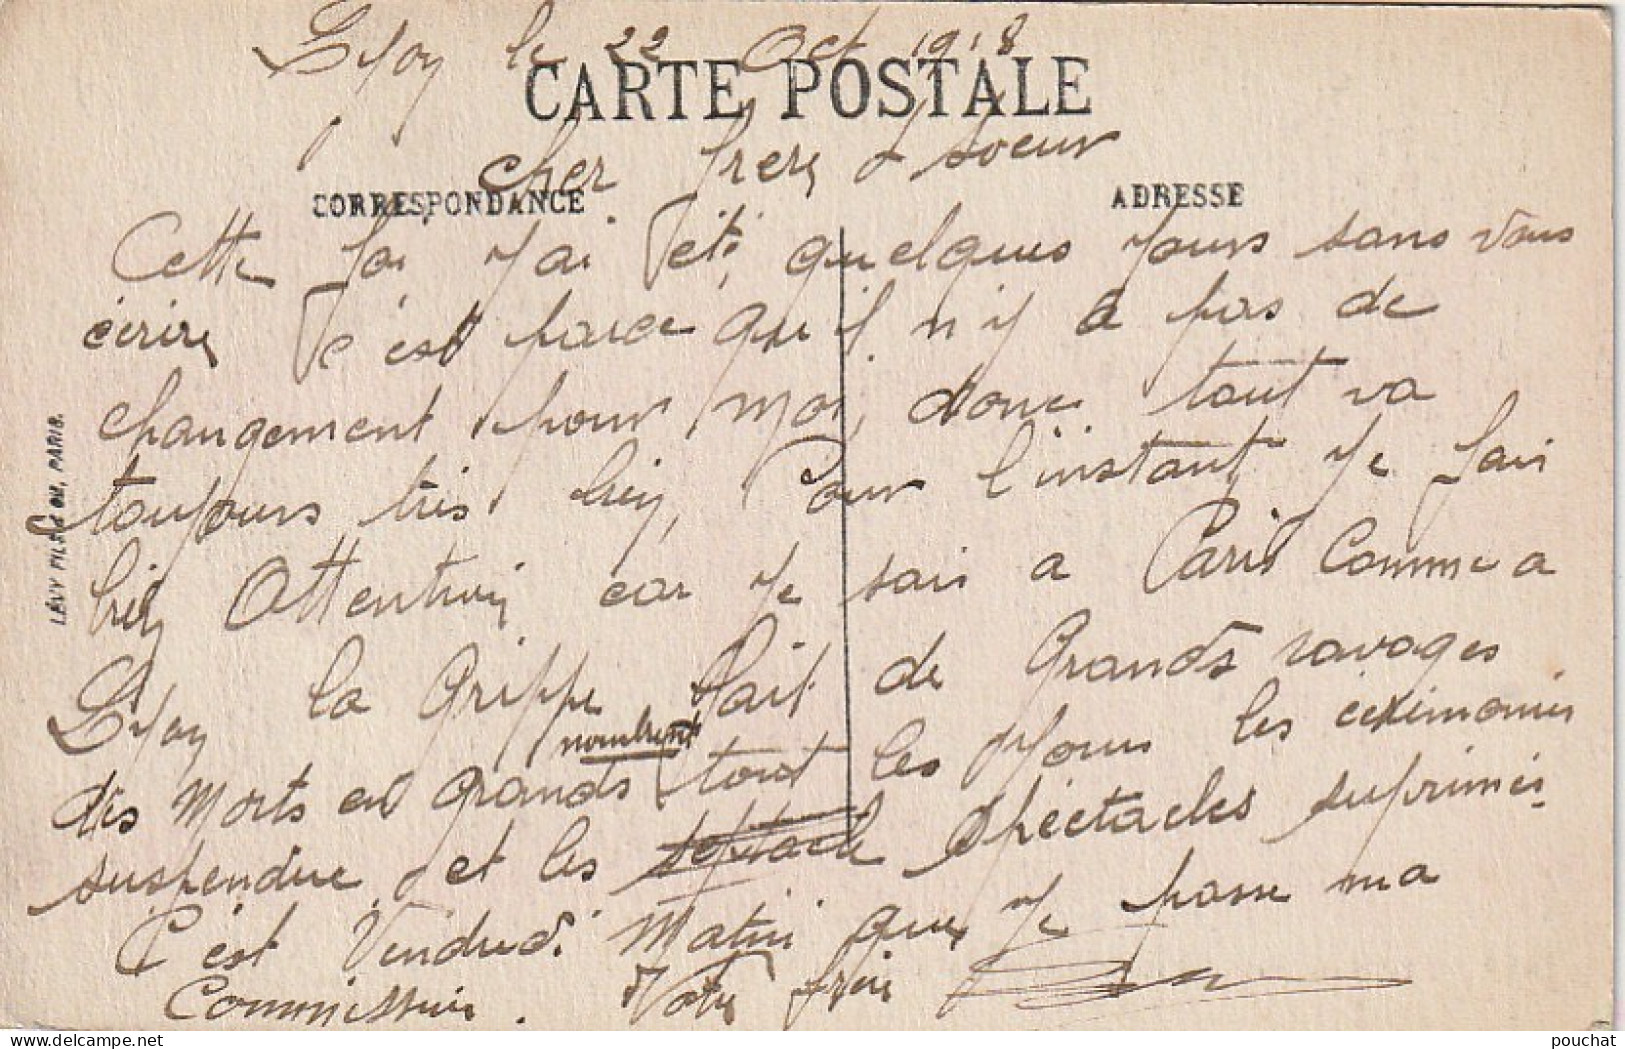 Lyon le 22 Oct 1918
CARTE POSTALE
cher frere & soeur
CORRESPONDANCE
ADRESSE
Cette foi j'ai été, quelques jours sans vous
écrire c'est parce qu'il n'y a pas de
changement pour moi, donc tout va
toujours très bien, Pour l'instant je fais
bien Attention car je sais a Paris Comme a
Lyon la Grippe fait de Grands ravages
nombreux
des Morts en Grands tout les jours les cérémonies
suspendue et les spectacles suprimés
C'est Vendredi Matin que je passe ma
Commission. Votre frère
LÉVY FILS & Cie, PARIS.
delcampe.net
pouchat